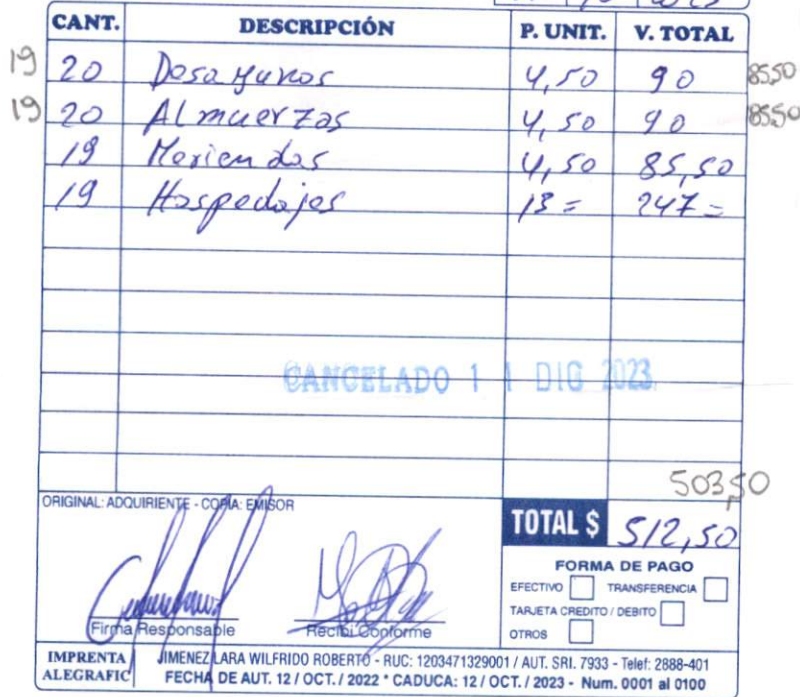 CANT. DESCRIPCIÓN P. UNIT. V. TOTAL
19 20 Desayunos 4,50 90 8550
19 20 Almuerzos 4,50 90 8550
19 Meriendas 4,50 85,50
19 Hospedajes 13= 247=
CANCELADO 11 DIC 2023
503,50
ORIGINAL: ADQUIRIENTE - COPIA: EMISOR
TOTAL $ 512,50
FORMA DE PAGO
EFECTIVO TRANSFERENCIA
TARJETA CREDITO / DEBITO
OTROS
Firma Responsable Recibí Conforme
IMPRENTA ALEGRAFIC
JIMENEZ LARA WILFRIDO ROBERTO - RUC: 1203471329001 / AUT. SRI. 7933 - Telef: 2888-401
FECHA DE AUT. 12 / OCT. / 2022 * CADUCA: 12 / OCT. / 2023 - Num. 0001 al 0100